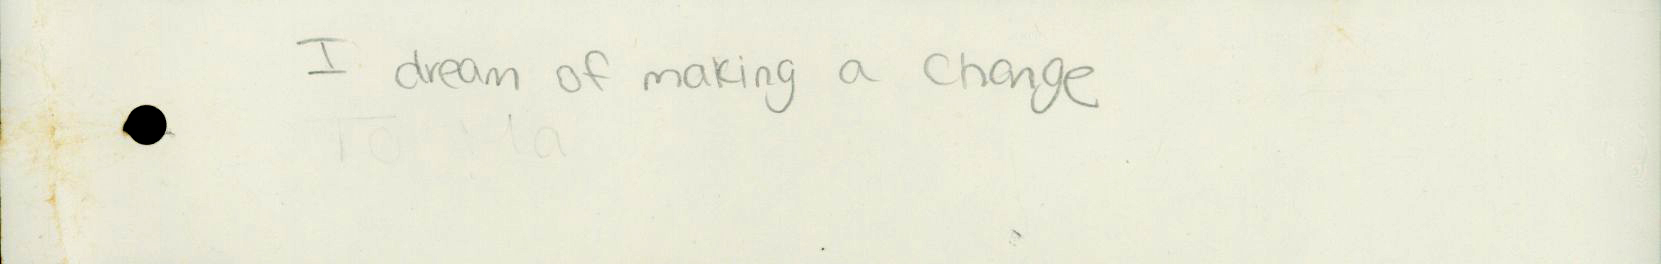 I dream of making a change